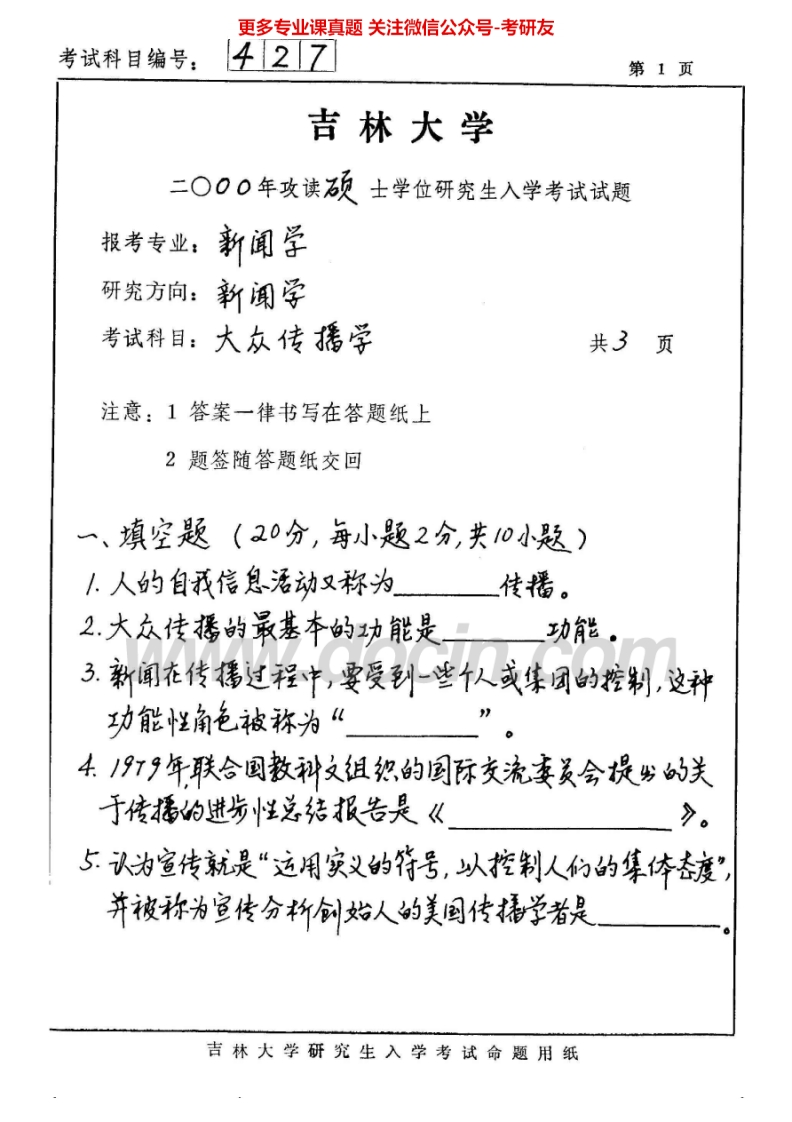 更多专业课真题 关注微信公众号-考研友
考试科目编号: 427
第 1 页
吉林大学
二〇〇〇年攻读硕士学位研究生入学考试试题
报考专业: 新闻学
研究方向: 新闻学
考试科目: 大众传播学
共3 页
注意: 1 答案一律书写在答题纸上
2 题签随答题纸交回
一、填空题 (20分,每小题2分,共10小题)
1. 人的自我信息活动又称为________传播。
2. 大众传播的最基本的功能是________功能。
www.docin.com
3. 新闻在传播过程中,要受到一些个人或集团的控制,这种
功能性角色被称为“__________”。
4. 1979年,联合国教科文组织的国际交流委员会提出的关
于传播的进步性总结报告是《________________》。
5. 认为宣传就是“运用实义的符号,以控制人们的集体态度”,
并被称为宣传分析创始人的美国传播学者是_________。
吉林大学研究生入学考试命题用纸